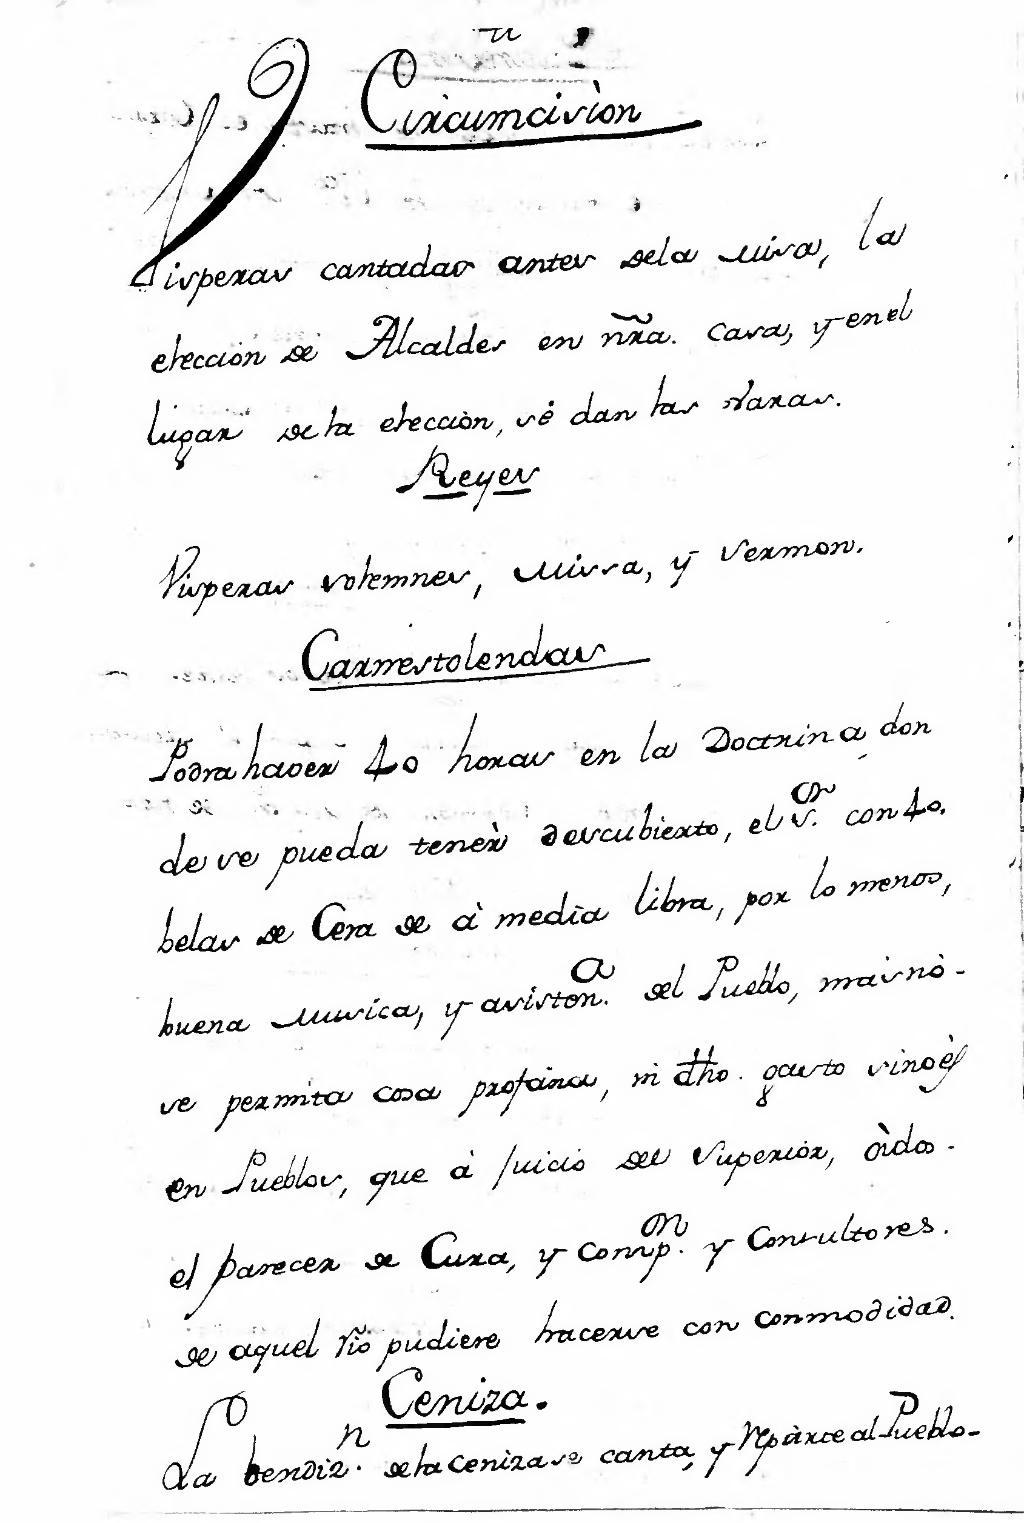 Circumcision
Visperas cantadas antes dela Misa, la
eleccion de Alcaldes en nr̃a. Casa, y en el
lugar de la eleccion, sè dan las Varas.
Reyes
Visperas solemnes, Missa, y Sermon.
Carnestolendas
Podra haver 40 horas en la Doctrina don
de se pueda tenèr descubierto, el S.or con 40.
belas de Cera de à media libra, por lo menos,
buena Musica, y asisten.a del Pueblo, mas nò-
se permita cosa profana, ni dho. gasto sino èƒ
en Pueblos, que à juicio del Superior, òidos-
el parecer de Cura, y Comp.n y Consultores.
de aquel rio pudiere hacerse con conmodidad.
Ceniza.
La bendiz.n de la ceniza se canta, y reparte al Pueblo-